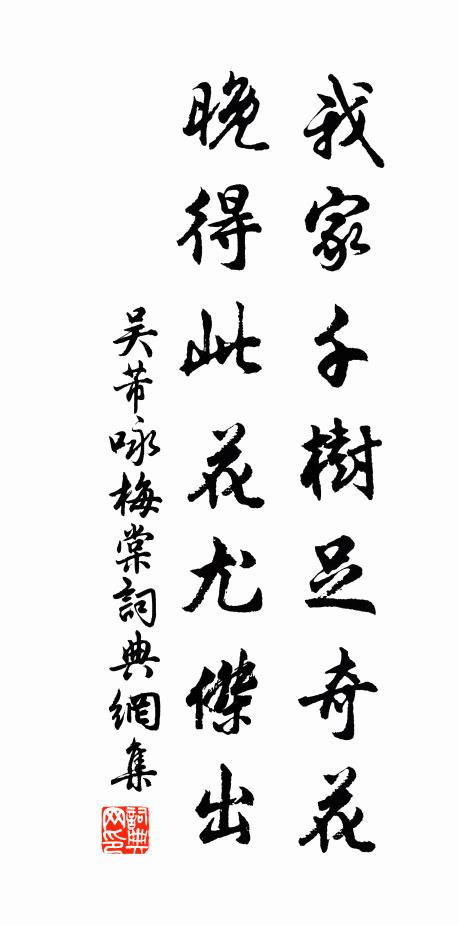 我家千樹足奇花
晚得此花尤傑出
吴芾咏梅棠詞典網集
詞典
网印